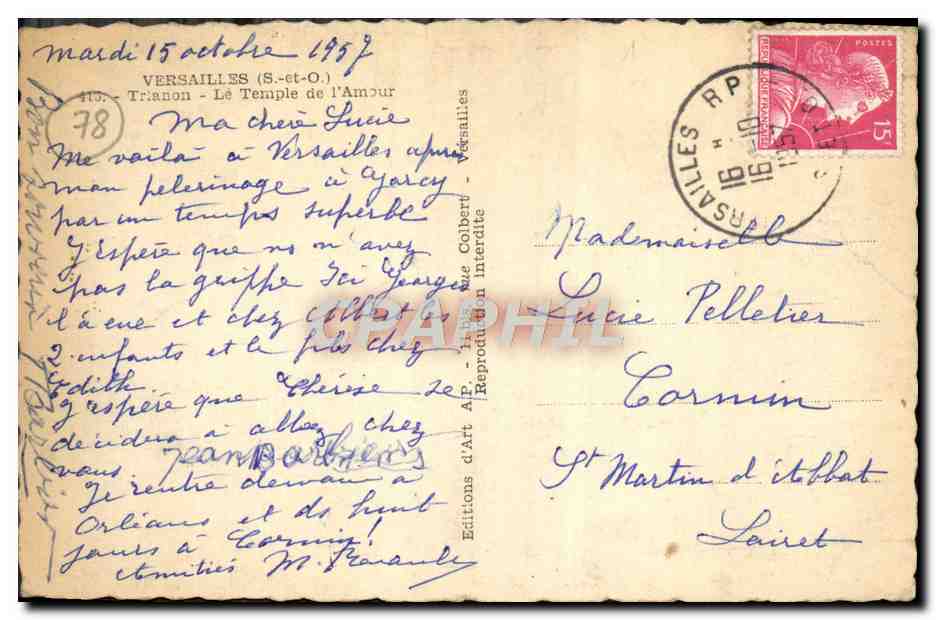 Mardi 15 octobre 1957
VERSAILLES (S.-et-O.)
415. - Trianon - Le Temple de l'Amour
78
Ma chère Lucie
Me voilà à Versailles après
mon pelerinage à
par un temps superbe
J'espère que ns n'avez
pas la grippe Ici Georges
l'a eue et chez Albert les
2 enfants et le plus chez
Edith.
J'espère que Thérèse se
décidera à allez chez
vous.
Jean Barbiers
Je rentre demain à
Orléans et ds huit
jours à Cormin!
Amitiés M.
Bon souvenir
Editions d'Art A.P. - 11 bis, rue Colbert - Versailles
Reproduction interdite
CPAPHIL
POSTES
REPUBLIQUE FRANÇAISE
15F
VERSAILLES RP
16 H
16-10
1957
Mademoiselle
Lucie Pelletier
Cormin
St Martin d'Abbat
Loiret